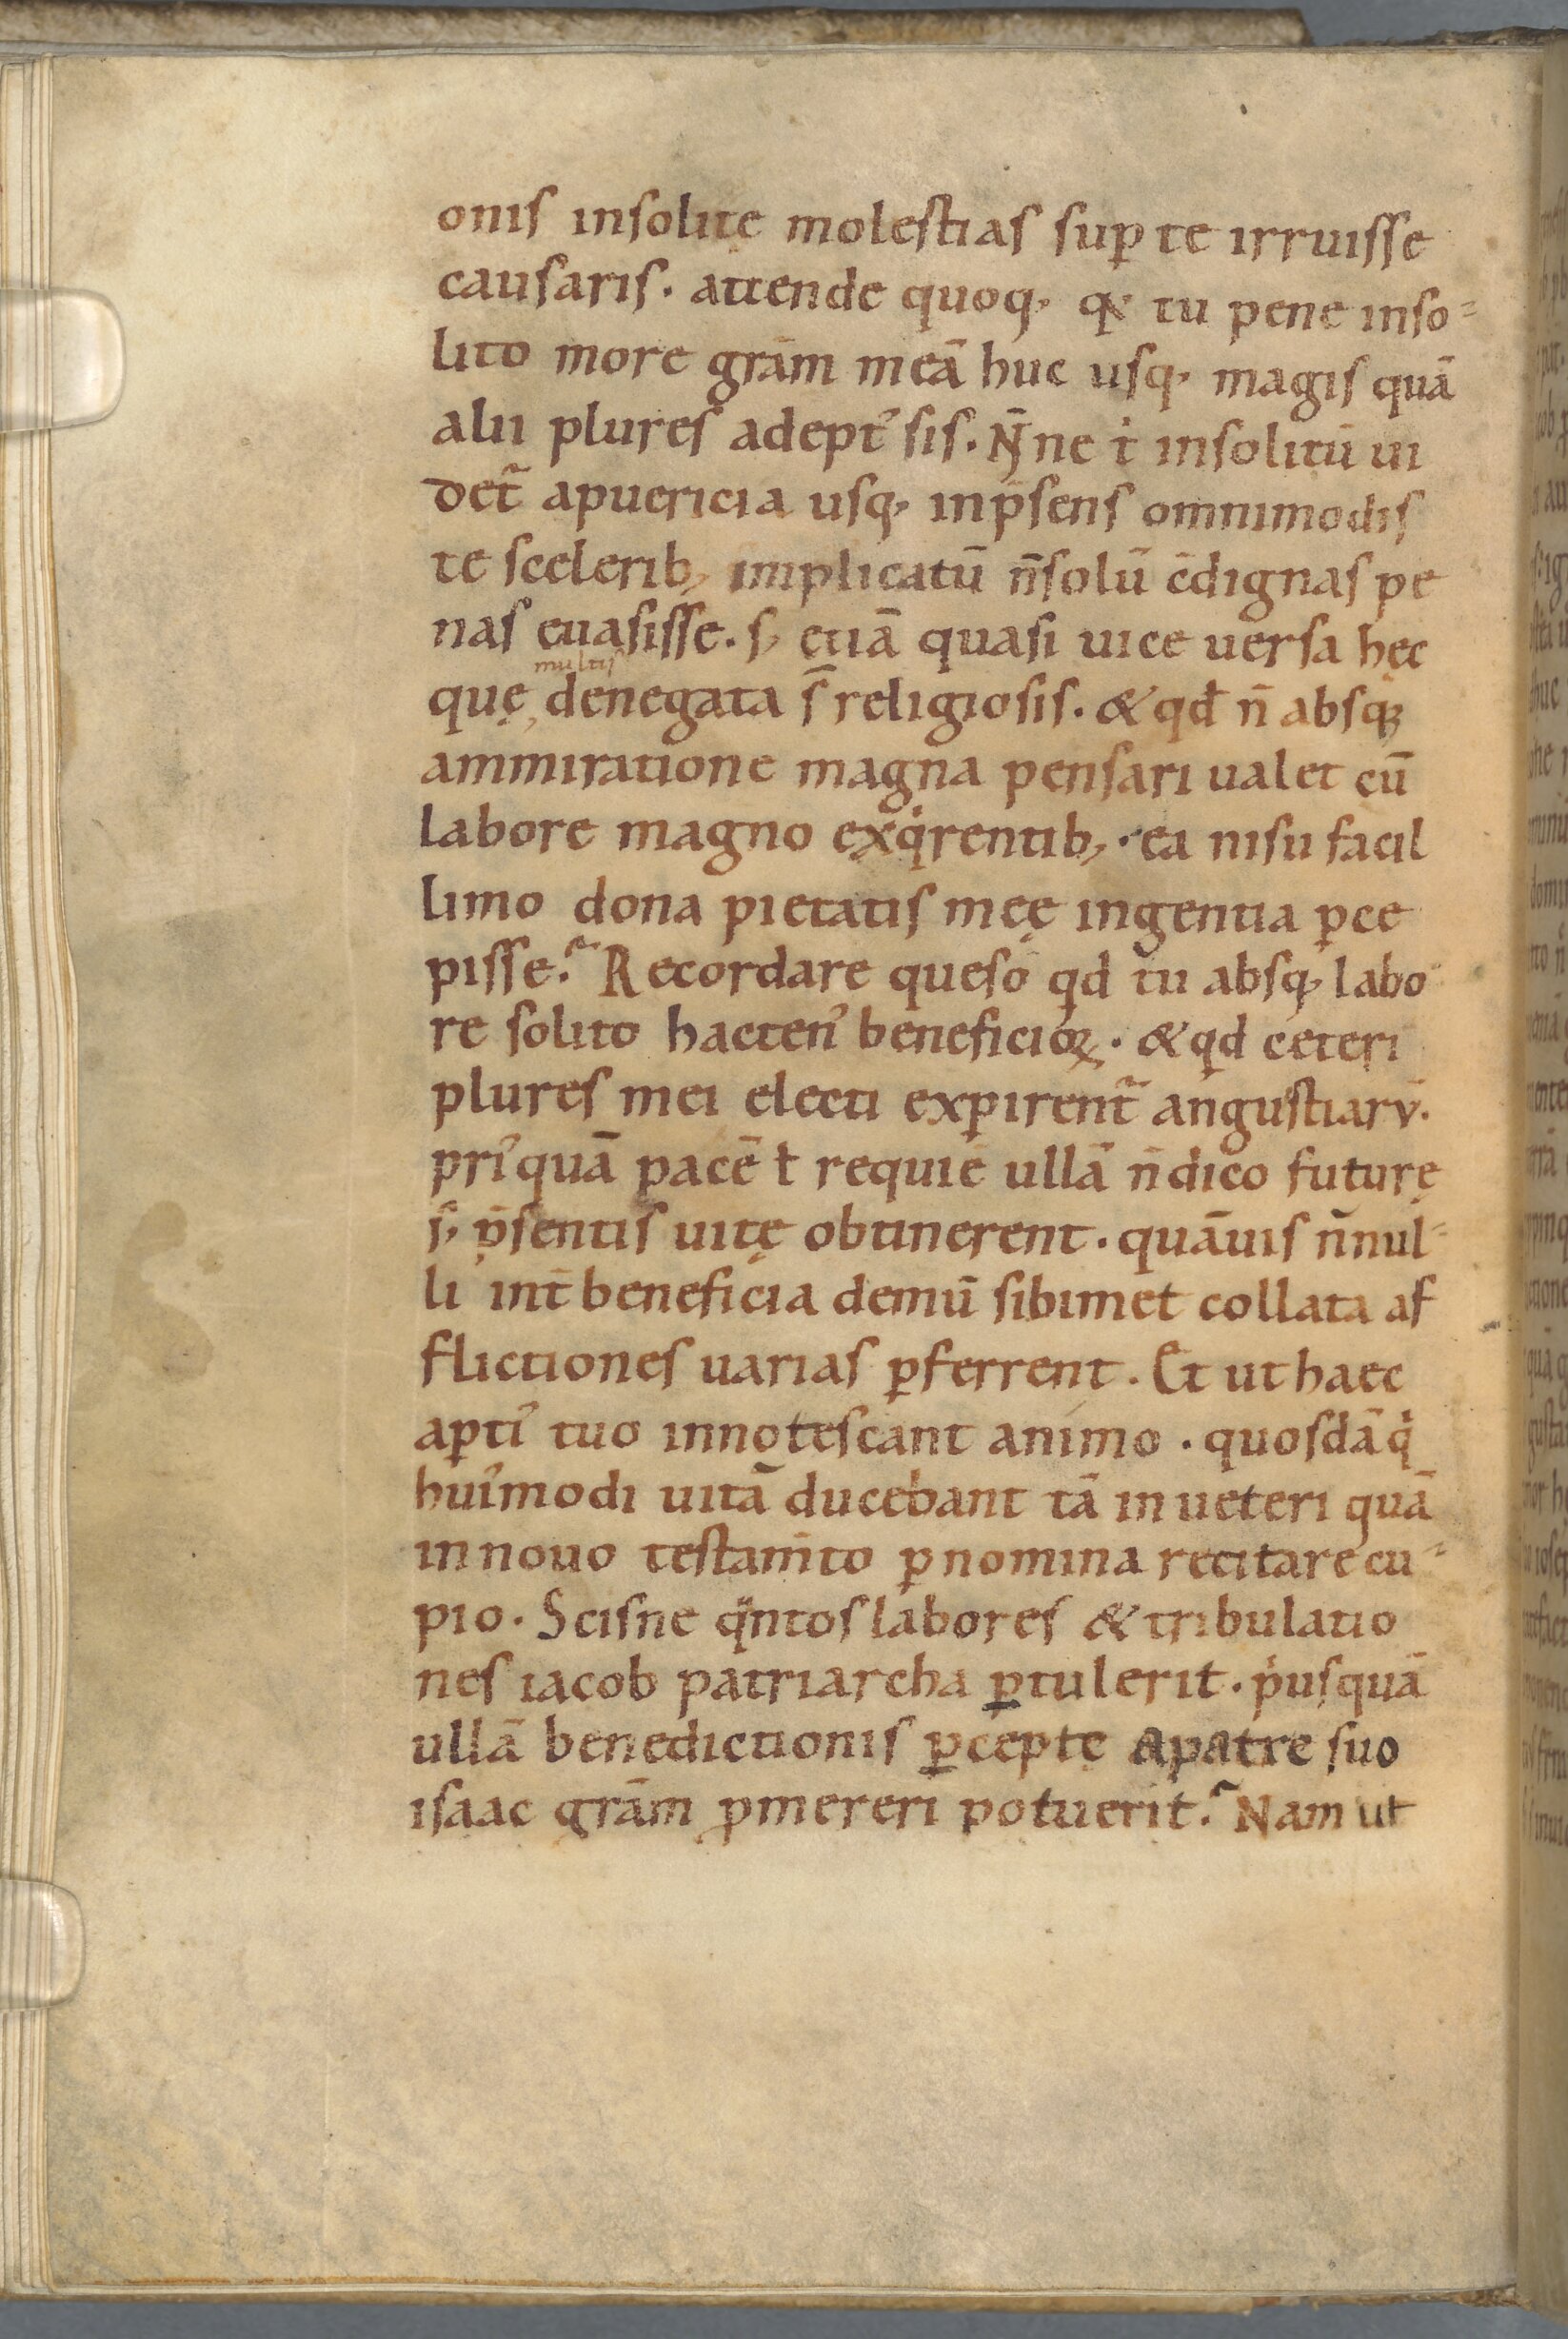 onis insolitę molestias suꝑ te irruisse
causaris. attende quoq; qꝛ tu pene inso-
lito more grām meā huc usq; magis quā
alii plures adept᾽ sis. Nͫne t̍ insolitū ui
det᷑ apuericia usq; inp̄sens omnimodis
te scelerib; implicatū n̄solū c̄dignas pe
nas euasisse. s; etiā quasi uice uersa hęc
multis
quę, denegata s̄ religiosis. & qđ n̄ absq;
ammiratione magna pensari ualet cū
labore magno exq̍rentib; · ea nisu facil
limo dona pietatis meę ingentia ꝑce
pisse.᷑ Recordare queso qđ tu absq; labo
re solito hacten᾽ beneficioꝝ. & qđ cęteri
plures mei electi exꝑirent᷑ angustiarū.
pri᾽quā pacē ł requiē ullā n̄dico futurę
s; p̄sentis uitę obtinerent. quāuis n̄nul-
li int̄ beneficia demū sibimet collata af
flictiones uarias ꝑferrent. Et ut haec
aꝑti᾽ tuo innotescant animo. quosdā q̍
hui᾽modi uitā ducebant tā in ueteri quā
in nouo testam̄to ꝑ nomina recitare cu-
pio. Scisne qͣntos labores & tribulatio
nes iacob patriarcha ꝑtulerit. p̍usquā
ullā benedictionis ꝑceptę apatre suo
isaac grām ꝓmereri potuerit.᷑ Nam ut